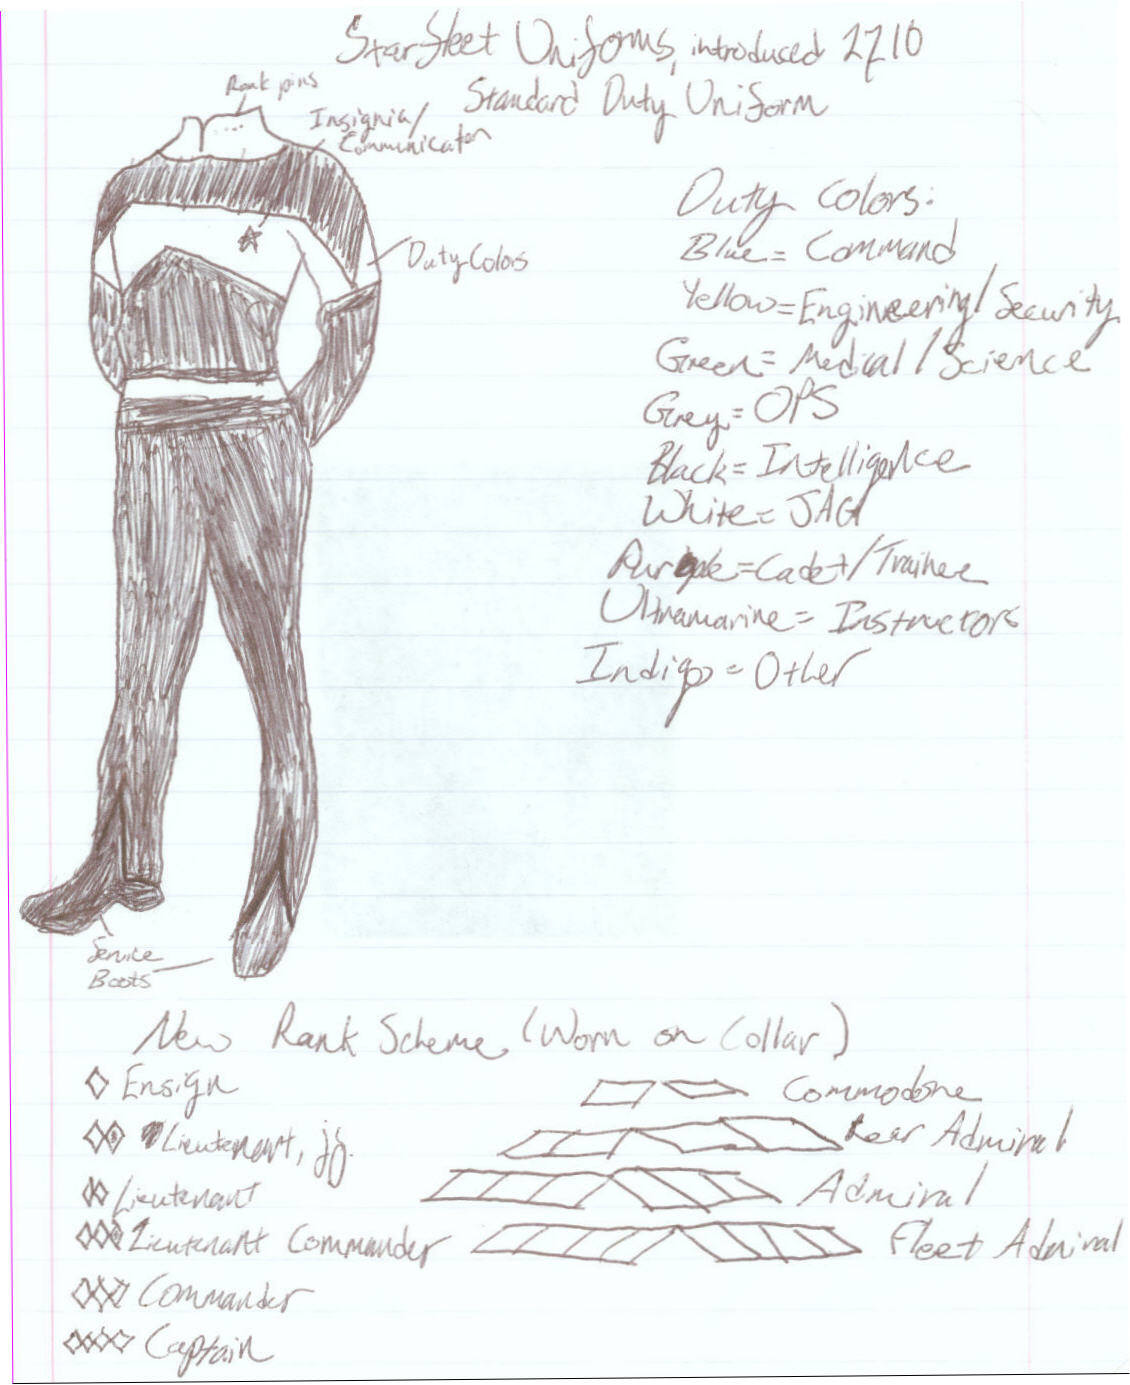 Starfleet Uniforms, introduced 2710
Standard Duty Uniform
Rank pins
Insignia/
Communicator
Duty Colors
Duty Colors:
Blue = Command
Yellow = Engineering/Security
Green = Medical/Science
Grey = OPS
Black = Intelligence
White = JAG
Purple = Cadet/Trainee
Ultramarine = Instructors
Indigo = Other
Service
Boots
New Rank Scheme (Worn on Collar)
Ensign
Lieutenant, jg.
Lieutenant
Lieutenant Commander
Commander
Captain
Commodore
Rear Admiral
Admiral
Fleet Admiral